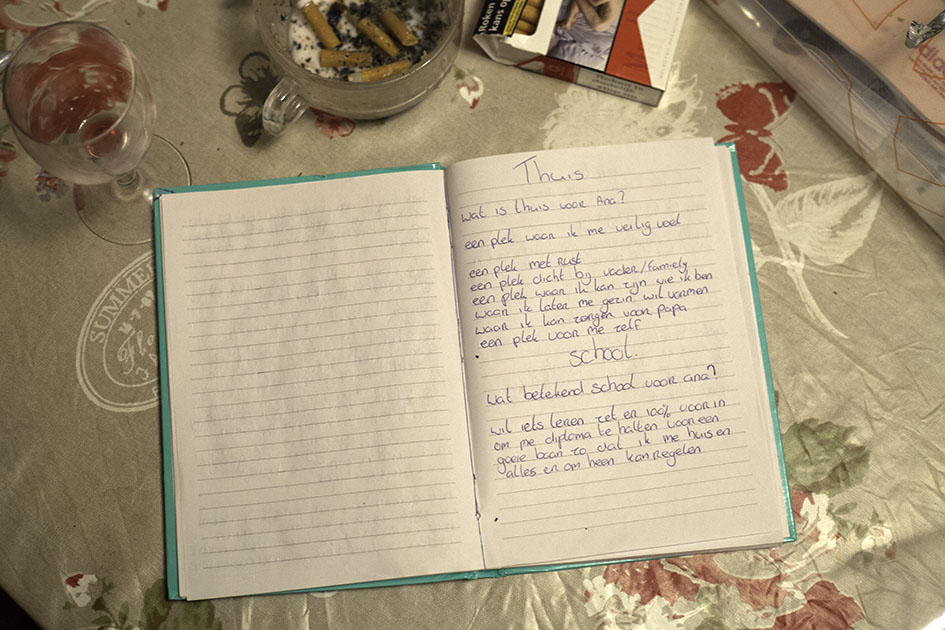 Roken
kans op
SUMME
Thuis
wat is thuis voor Ana?
een plek waar ik me veilig voel
een plek met Rust
een plek dicht bij vader/famiely
een plek waar ik kan zijn wie ik ben
waar ik later me gezin wil vormen
waar ik kan zorgen voor papa
een plek voor me zelf
school.
wat betekend school voor ana?
wil iets leren zet er 100% voor in
om me diploma te halten voor een
goeie baan zo dat ik me huis en
alles er om heen kan regelen